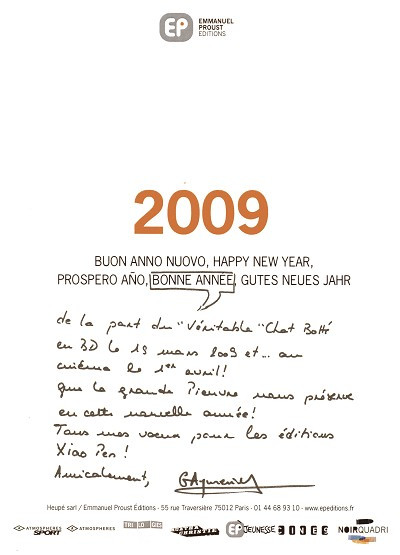 EP EMMANUEL
PROUST
EDITIONS
2009
BUON ANNO NUOVO, HAPPY NEW YEAR,
PROSPERO AÑO, BONNE ANNEE, GUTES NEUES JAHR
de la part du "Véritable" Chat Botté
en BD le 19 mars 2009 et... au
cinéma le 1er avril!
que la grande Pieuvre nous préserve
en cette nouvelle année!
Tous mes voeux pour les éditions
Xiao Pan!
Amicalement,
Heupé sarl / Emmanuel Proust Éditions - 55 rue Traversière 75012 Paris - 01 44 68 93 10 - www.epeditions.fr
ATMOSPHERES SPORT ATMOSPHERES TRILOGIES EP JEUNESSE NOIRQUADRI